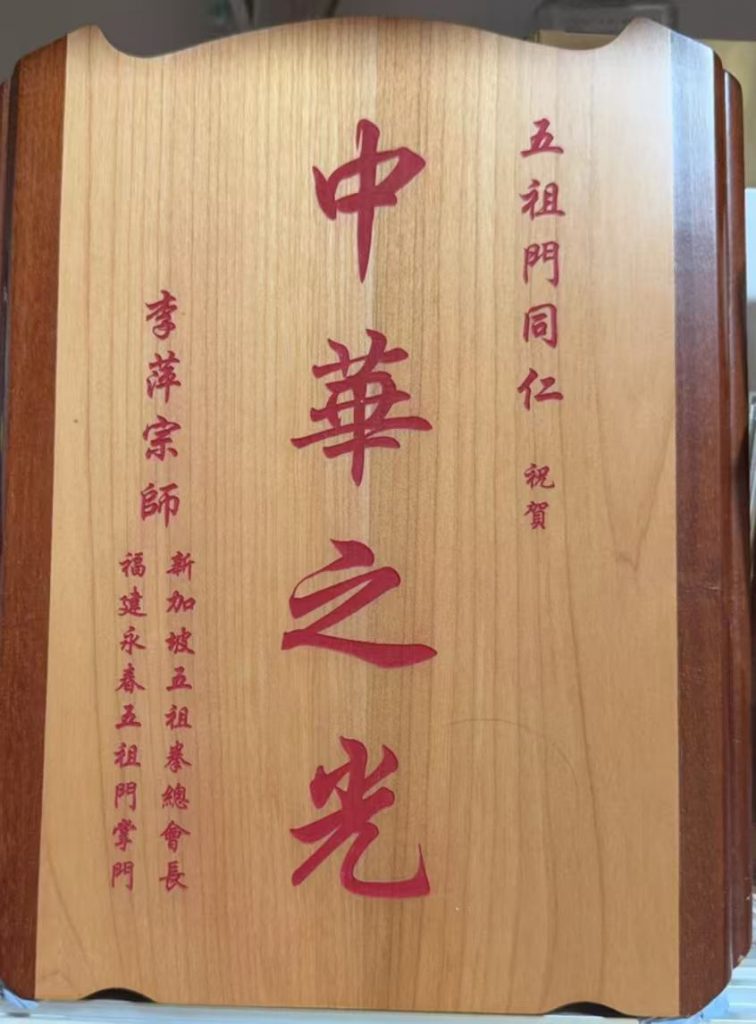 五祖門同仁 祝賀
中華之光
李萍宗師
新加坡五祖拳總會長
福建永春五祖門掌門